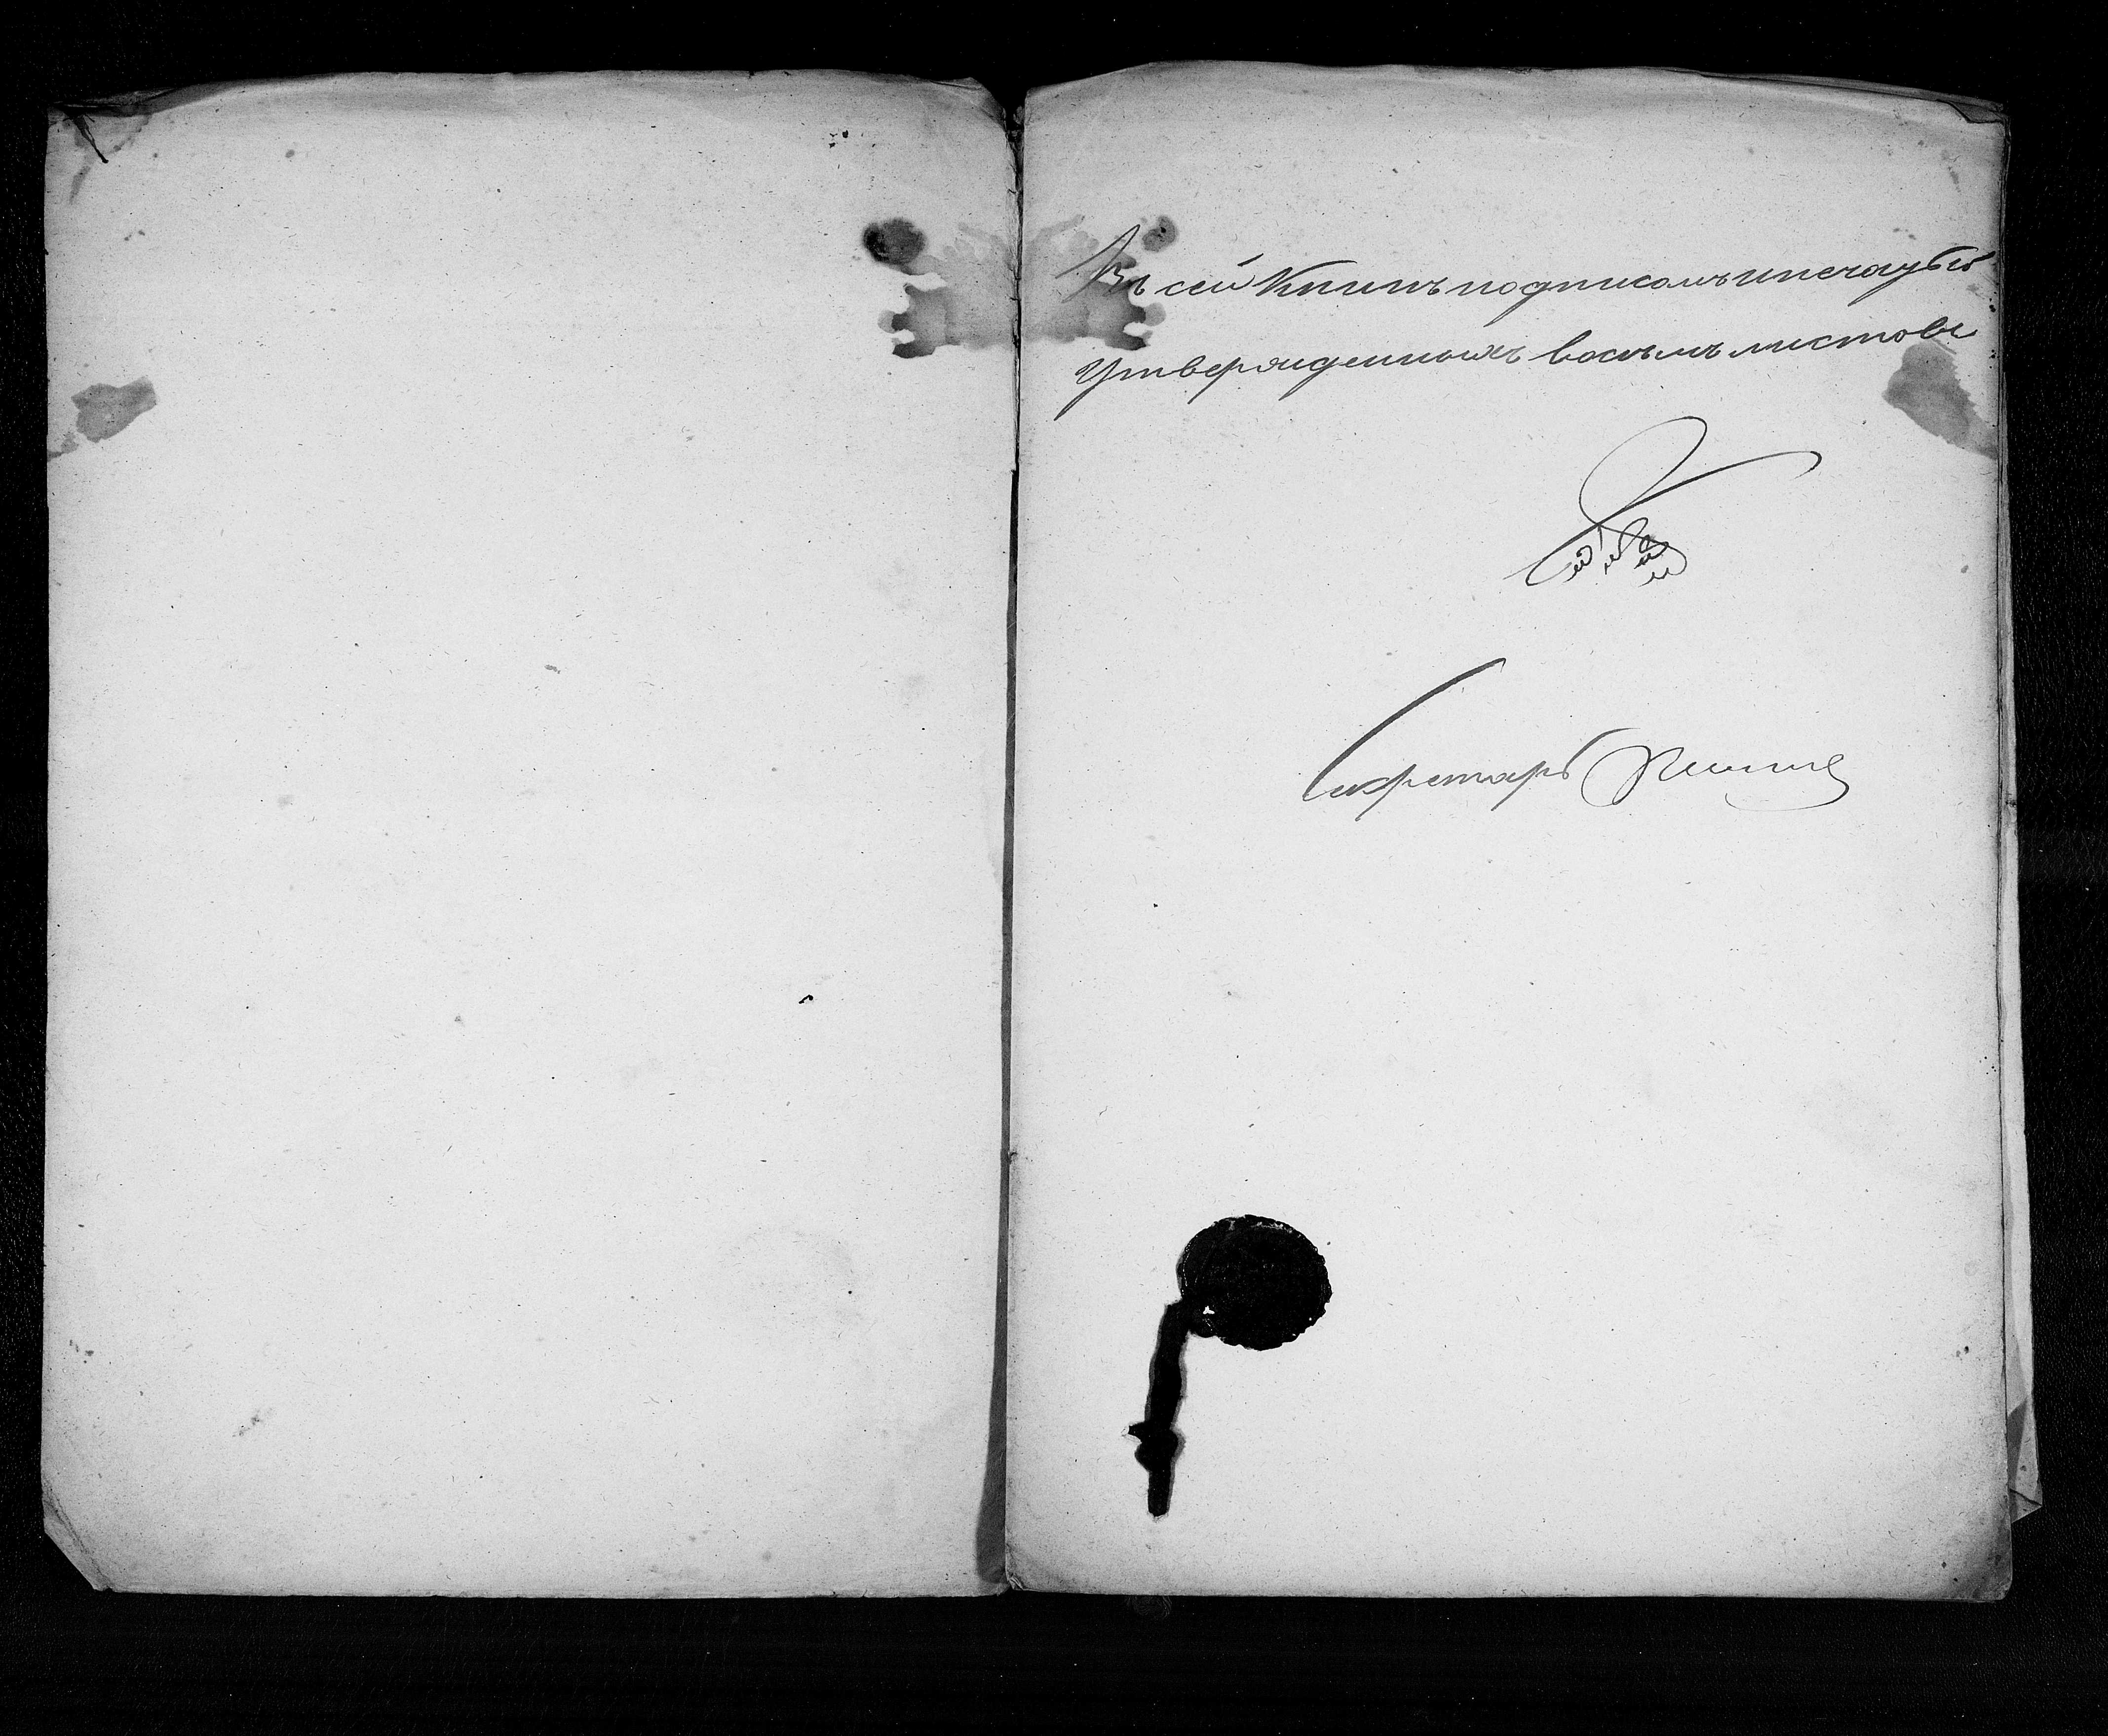 Въ сей Книгѣ подписомъ и печатью
утвержденныхъ восемь листовъ
Секретарь